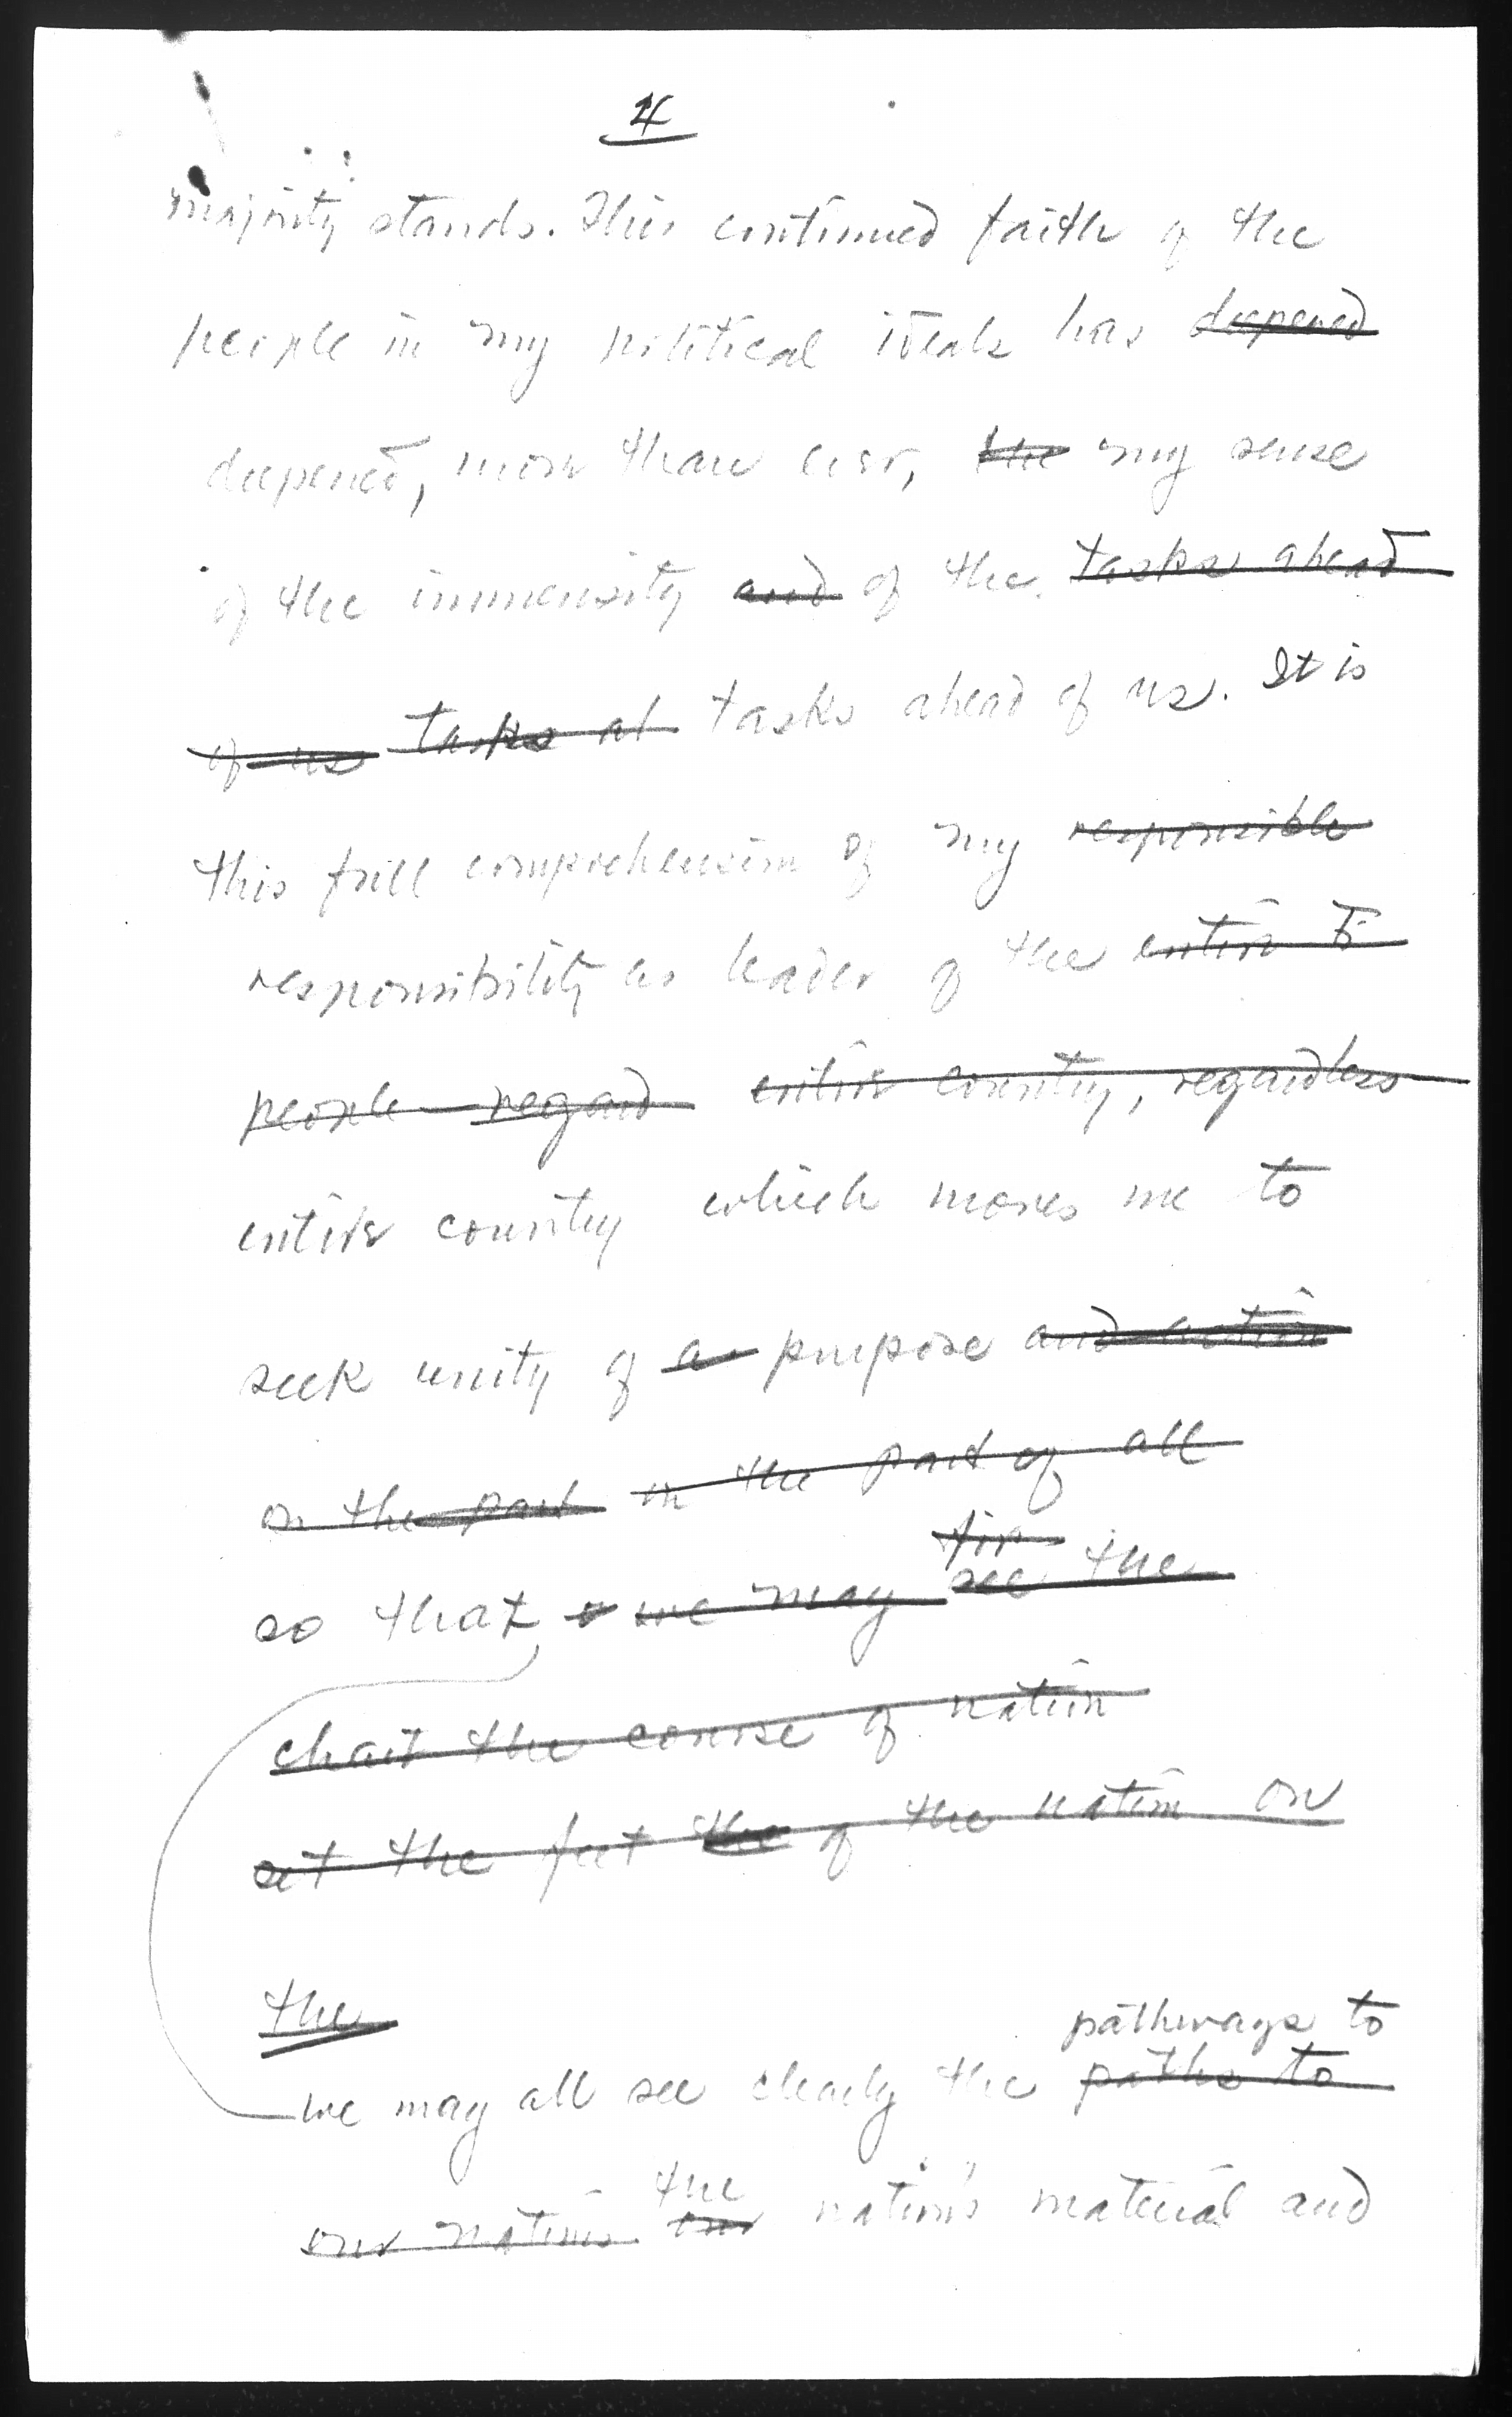 4
majority stands. This continued faith of the
people in my political ideals has deepened
deepened, more than ever, the my sense
of the immensity and of the tasks ahead
of us tasks ah tasks ahead of us. It is
this full comprehension of my responsible
responsibility as leader of the entire
people regard entire country, regardless
entire country which moves me to
seek unity of a purpose and action
on the part on the part of all
fir
so that we may see the
chart the course of nation
set the feet the of the nation on
the
pathways to
we may all see clearly the paths to
the
our nation's our nation's material and